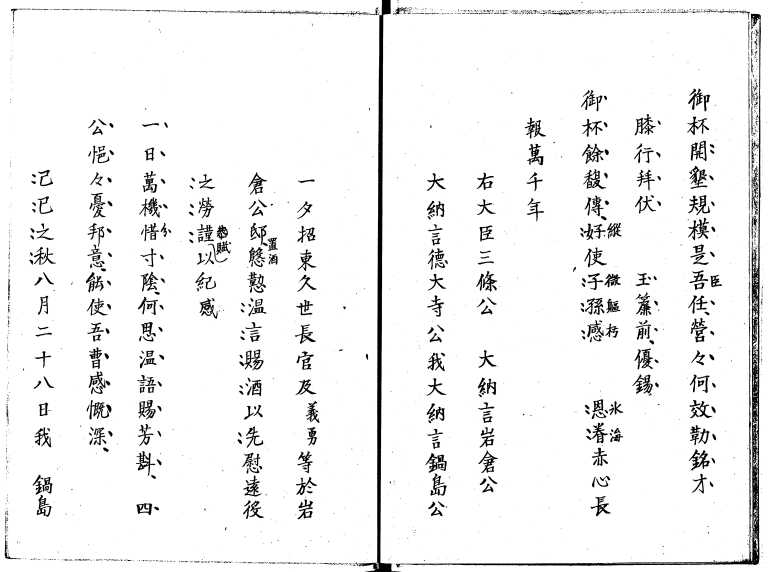 御杯開墾規模是吾臣任營々何效勒銘才
膝行拜伏　　玉簾前優錫
御杯餘馥傳好縱使子微軀朽孫感　　恩氷海眷赤心長
報萬千年
右大臣三條公　大納言岩倉公
大納言德大寺公我大納言鍋島公
一夕招東久世長官及義勇等於岩
倉公邸置酒慇懃温言賜酒以先慰遠役
之勞謹賦以紀感
一日萬機惜分寸陰何思温語賜芳斟　四
公悒々憂邦意能使吾曹感慨深
己巳之秋八月二十八日我　鍋島